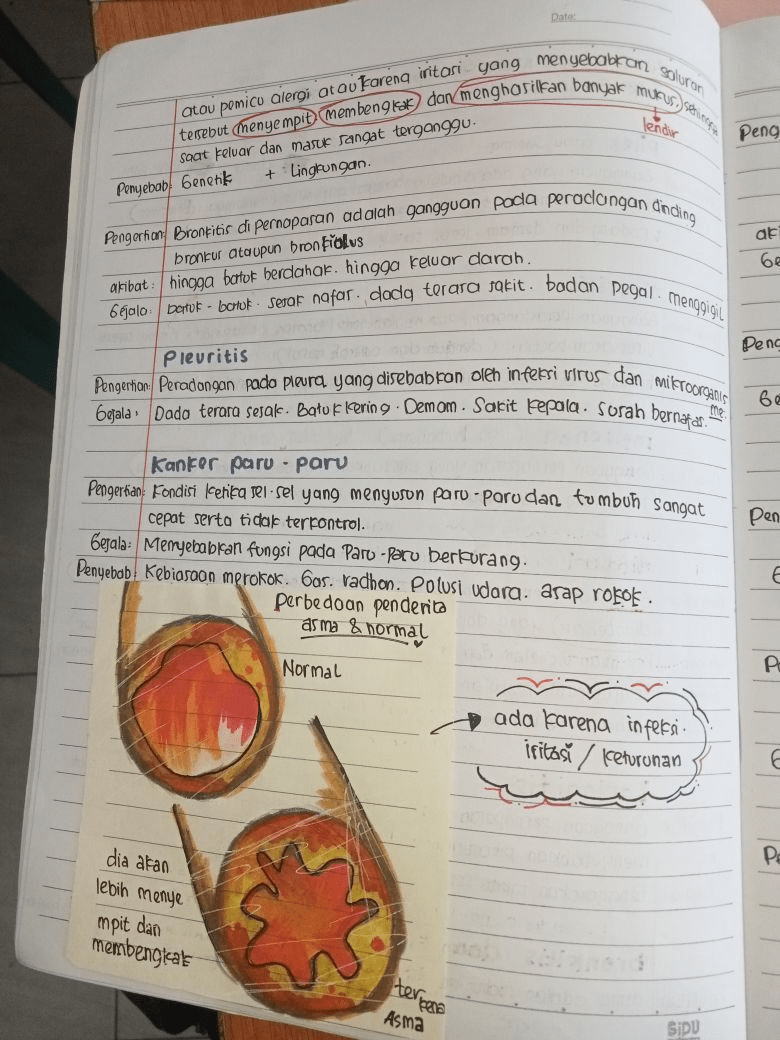 Date:
atau pemicu alergi atau karena iritasi yang menyebabkan saluran
tersebut menyempit membengkak dan menghasilkan banyak mukus, sehingga
lendir
saat keluar dan masuk sangat terganggu.
Penyebab: Genetik + Lingkungan.
Pengertian: Bronkitis di pernapasan adalah gangguan pada peradangan dinding
bronkus ataupun bronkiolus
akibat: hingga batuk berdahak. hingga keluar darah.
Gejala: batuk-batuk. sesak nafas. dada terasa sakit. badan pegal. menggigil
Pleuritis
Pengertian: Peradangan pada pleura yang disebabkan oleh infeksi virus dan mikroorganis
me.
Gejala: Dada terasa sesak. Batuk kering. Demam. Sakit kepala. Susah bernafas.
Kanker paru-paru
Pengertian: Kondisi ketika sel-sel yang menyusun paru-paru dan tumbuh sangat
cepat serta tidak terkontrol.
Gejala: Menyebabkan fungsi pada Paru-Paru berkurang.
Penyebab: Kebiasaan merokok. Gas. radhon. Polusi udara. asap rokok.
Perbedaan penderita
asma & normal
Normal
ada karena infeksi.
iritasi / keturunan
dia akan
lebih menye
mpit dan
membengkak
terkena
Asma
SiDU
Peng
aki
Ge
Peng
Ge
Pen
G
Pe
G
Pe